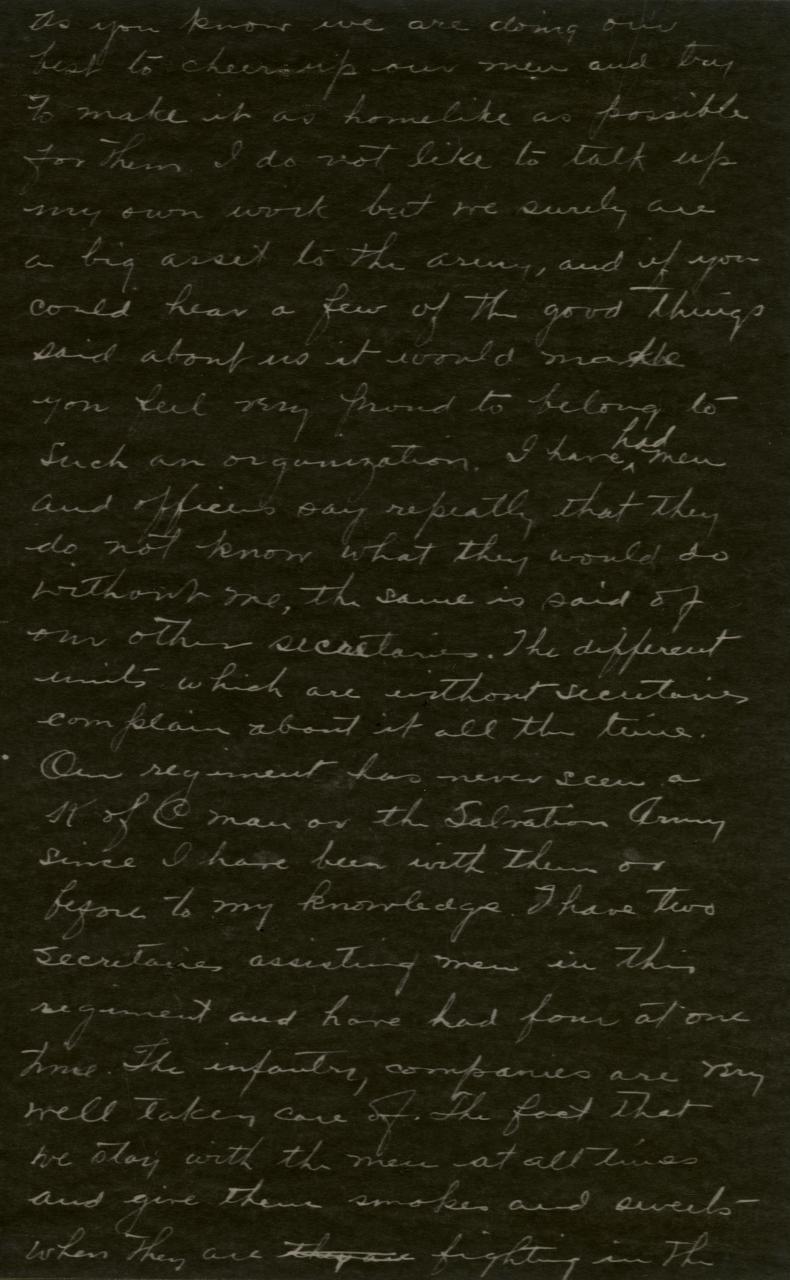 As you know we are doing our
best to cheer up our men and try
to make it as homelike as possible
for them. I do not like to talk up
my own work but we surely are
a big asset to the army, and if you
could hear a few of the good things
said about us it would make
you feel very proud to belong to
such an organization. I have had men
and officers say repeatly that they
do not know what they would do
without me, the same is said of
our other secretaries. The different
units which are without secretaries
complain about it all the time.
Our regiment has never seen a
K of C man or the Salvation Army
since I have been with them or
before to my knowledge. I have two
secretaries assisting men in this
regiment and have had four at one
time. The infantry, companies are very
well taken care of. The fact that
we stay with the men at all times
and give them smokes and sweets
when they are they are fighting in the